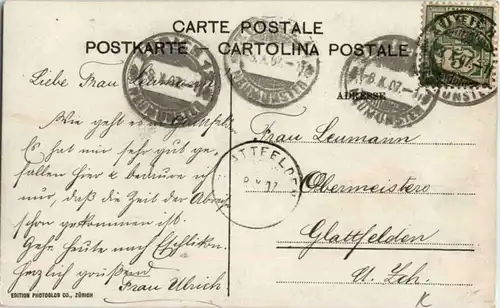 CARTE POSTALE
POSTKARTE — CARTOLINA POSTALE
ADRESSE
Liebe Frau Leumann
Wie geht es
Es hat mir sehr gut ge-
fallen hier & bedaure ich
nur, daß die Zeit der Abreise
schon gekommen ist.
Gehe heute nach Eschlikon.
Herzlich grüßend
Frau Ulrich
Frau Leumann
Obermeisters
Glattfelden
Ct. Zch.
EDITION PHOTOGLOB CO., ZÜRICH